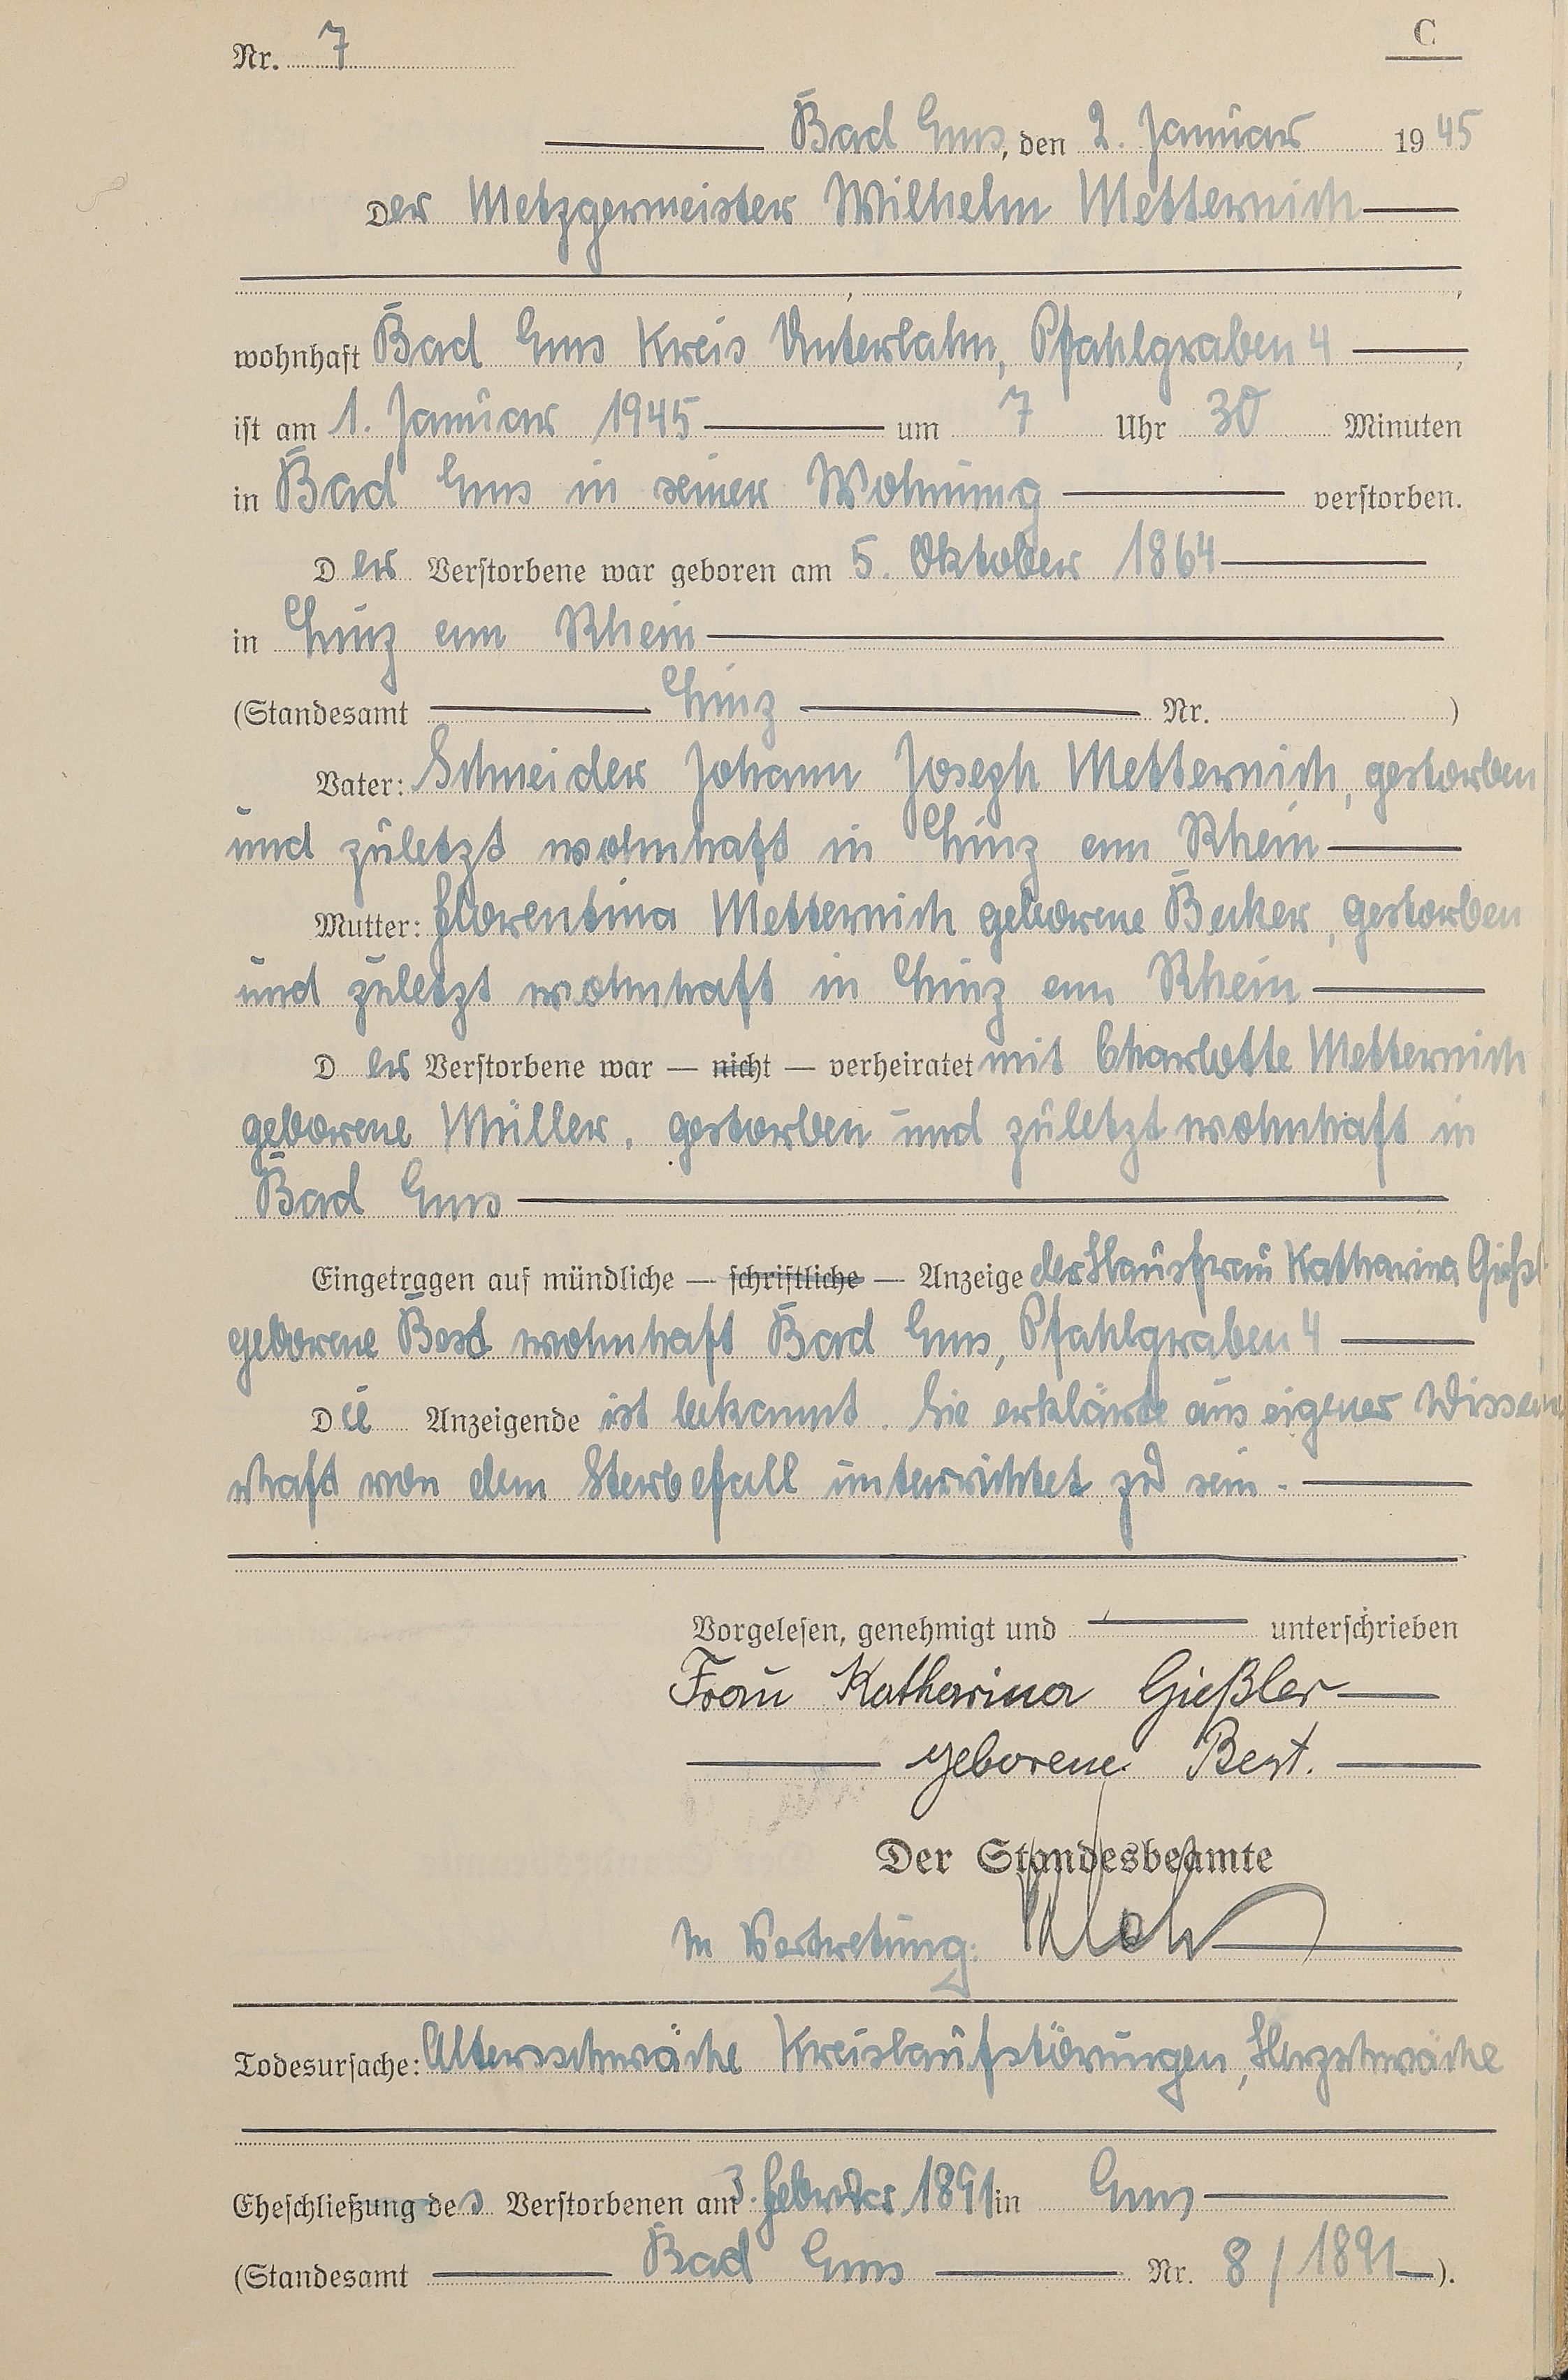 Nr. 7
C
Bad Ems, den 2. Januar 1945
Der Metzgermeister Wilhelm Metternich
wohnhaft Bad Ems Kreis Unterlahn, Pfahlgraben 4,
ist am 1. Januar 1945 um 7 Uhr 30 Minuten
in Bad Ems in seiner Wohnung verstorben.
Der Verstorbene war geboren am 5. Oktober 1864
in Linz am Rhein
(Standesamt Linz Nr. )
Vater: Schneider Johann Joseph Metternich, gestorben
und zuletzt wohnhaft in Linz am Rhein
Mutter: Florentina Metternich geborene Becker, gestorben
und zuletzt wohnhaft in Linz am Rhein
Der Verstorbene war — nicht — verheiratet mit Charlotte Metternich
geborene Müller, gestorben und zuletzt wohnhaft in
Bad Ems
Eingetragen auf mündliche — schriftliche — Anzeige der Hausfrau Katharina Gießl
geborene Best wohnhaft Bad Ems, Pfahlgraben 4
Die Anzeigende ist bekannt. Sie erklärte aus eigener Wissen
schaft von dem Sterbefall unterrichtet zu sein.
Vorgelesen, genehmigt und unterschrieben
Frau Katharina Gießler
geborene Best.
Der Standesbeamte
In Vertretung:
Todesursache: Altersschwäche Kreislaufstörungen, Herzschwäche
Eheschließung des Verstorbenen am 3. Februar 1891 in Ems
(Standesamt Bad Ems Nr. 8/1891).